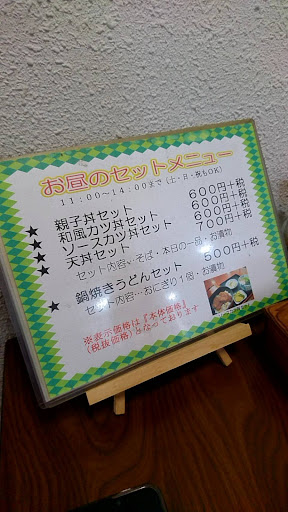 お昼のセットメニュー
11:00～14:00まで(土・日・祝もOK)
★ 親子丼セット 600円+税
★ 和風カツ丼セット 600円+税
★ ソースカツ丼セット 600円+税
★ 天丼セット 700円+税
セット内容…そば・本日の一品・お漬物
★ 鍋焼きうどんセット 500円+税
セット内容…おにぎり1個・お漬物
※表示価格は『本体価格』
(税抜価格)となっております